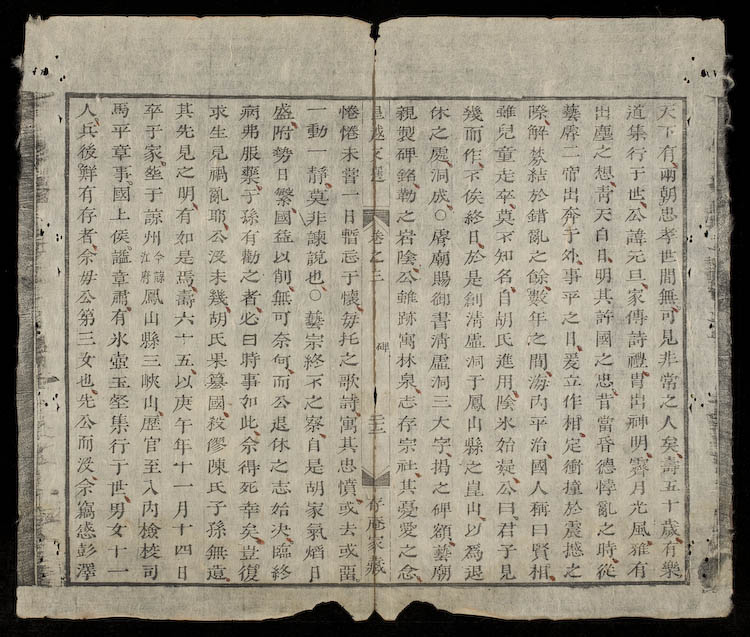 天下有兩朝忠孝世間無可見非常之人矣壽五十歲有樂
道集行于世公諱元旦家傳詩禮胄出神明霽月光風雅有
出塵之想青天白日明其許國之忠昔當昏德悖亂之時從
藝睿二帝出奔于外事平之日爰立作相定衝撞於震撼之
際解棼結於錯亂之餘數年之間海內平治國人稱曰賢相
雖兒童走卒莫不知名自胡氏進用陰氷始凝公曰君子見
幾而作不俟終日於是創清虛洞于鳳山縣之崑山以爲退
休之處洞成○睿廟賜御書清虛洞三大字揭之碑額藝廟
親製碑銘勒之岩陰公雖跡寓林泉志存宗社其憂愛之念
皇越文選 卷之三 碑 存庵家藏
惓惓未嘗一日暫忘于懷每托之歌詩寓其忠憤或去或留
一動一靜莫非諫說也○藝宗終不之寤自是胡家氣熖日
盛附勢日繁國益以削無可奈何而公退休之志始決臨終
病弗服藥子孫有勸之者必曰時事如此余得死幸矣豈復
求生見禍亂耶公沒未幾胡氏果篡國殺僇陳氏子孫無遺
其先見之明有如是焉壽六十五以庚午年十一月十四日
卒于家塟于諒州今諒江府鳳山縣三峽山歷官至入內檢校司
馬平章事國上侯諡章肅有氷壺玉壑集行于世男女十一
人兵後鮮有存者余母公第三女也先公而沒余竊感彭澤